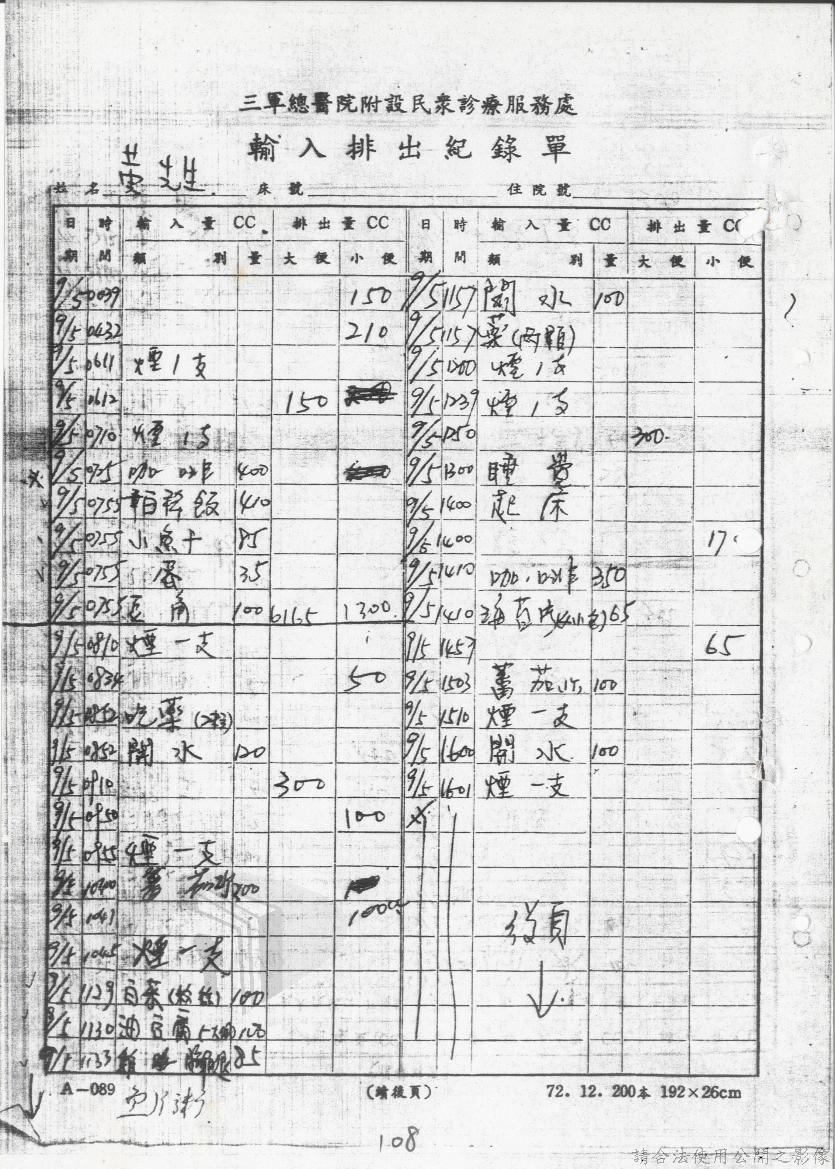 三軍總醫院附設民眾診療服務處
輸入排出紀錄單
姓名 黃先生 床號 住院號
日期 時間 輸入量CC 類別 量 排出量CC 大便 小便 日期 時間 輸入量CC 類別 量 排出量CC 大便 小便
9/5 0039 150
9/5 0432 210
9/5 0611 煙1支
9/5 0612 150
9/5 0710 煙1支
9/5 0725 咖啡 400
9/5 0755 410
9/5 0755 小魚干 85
9/5 0755 蛋 35
9/5 0755 100 1300
9/5 0810 煙一支
9/5 0834 50
9/5 0852 吃藥
9/5 0852 開水 120
9/5 0910 300
9/5 0950 100
9/5 0955 煙一支
9/5 200
9/5 1041 100
9/5 1045 煙一支
9/5 1129 白菜 100
9/5 1130 油豆腐
9/5 1133 85
9/5 1157 開水 100
9/5 1157 藥(兩顆)
9/5 1200 煙1支
9/5 1239 煙1支
9/5 1250 300
9/5 1300 睡覺
9/5 1400 起床
9/5 1400
9/5 1410 咖啡 350
9/5 1410 65
9/5 1457 65
9/5 1503 蕃茄汁 100
9/5 1510 煙一支
9/5 1600 開水 100
9/5 1601 煙一支
後頁
A-089 (續後頁) 72. 12. 200本 192×26cm
108
請合法使用公開之影像